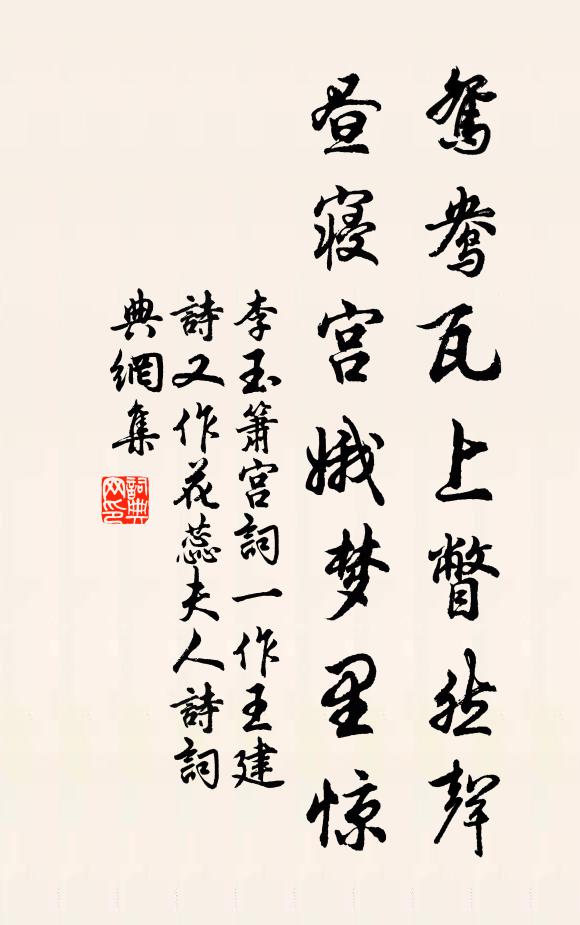 鸳鸯瓦上瞥然聲
昼寝宫娥梦里惊
李玉箫宫詞一作王建
詩又作花蕊夫人詩詞
典網集
詞典网印